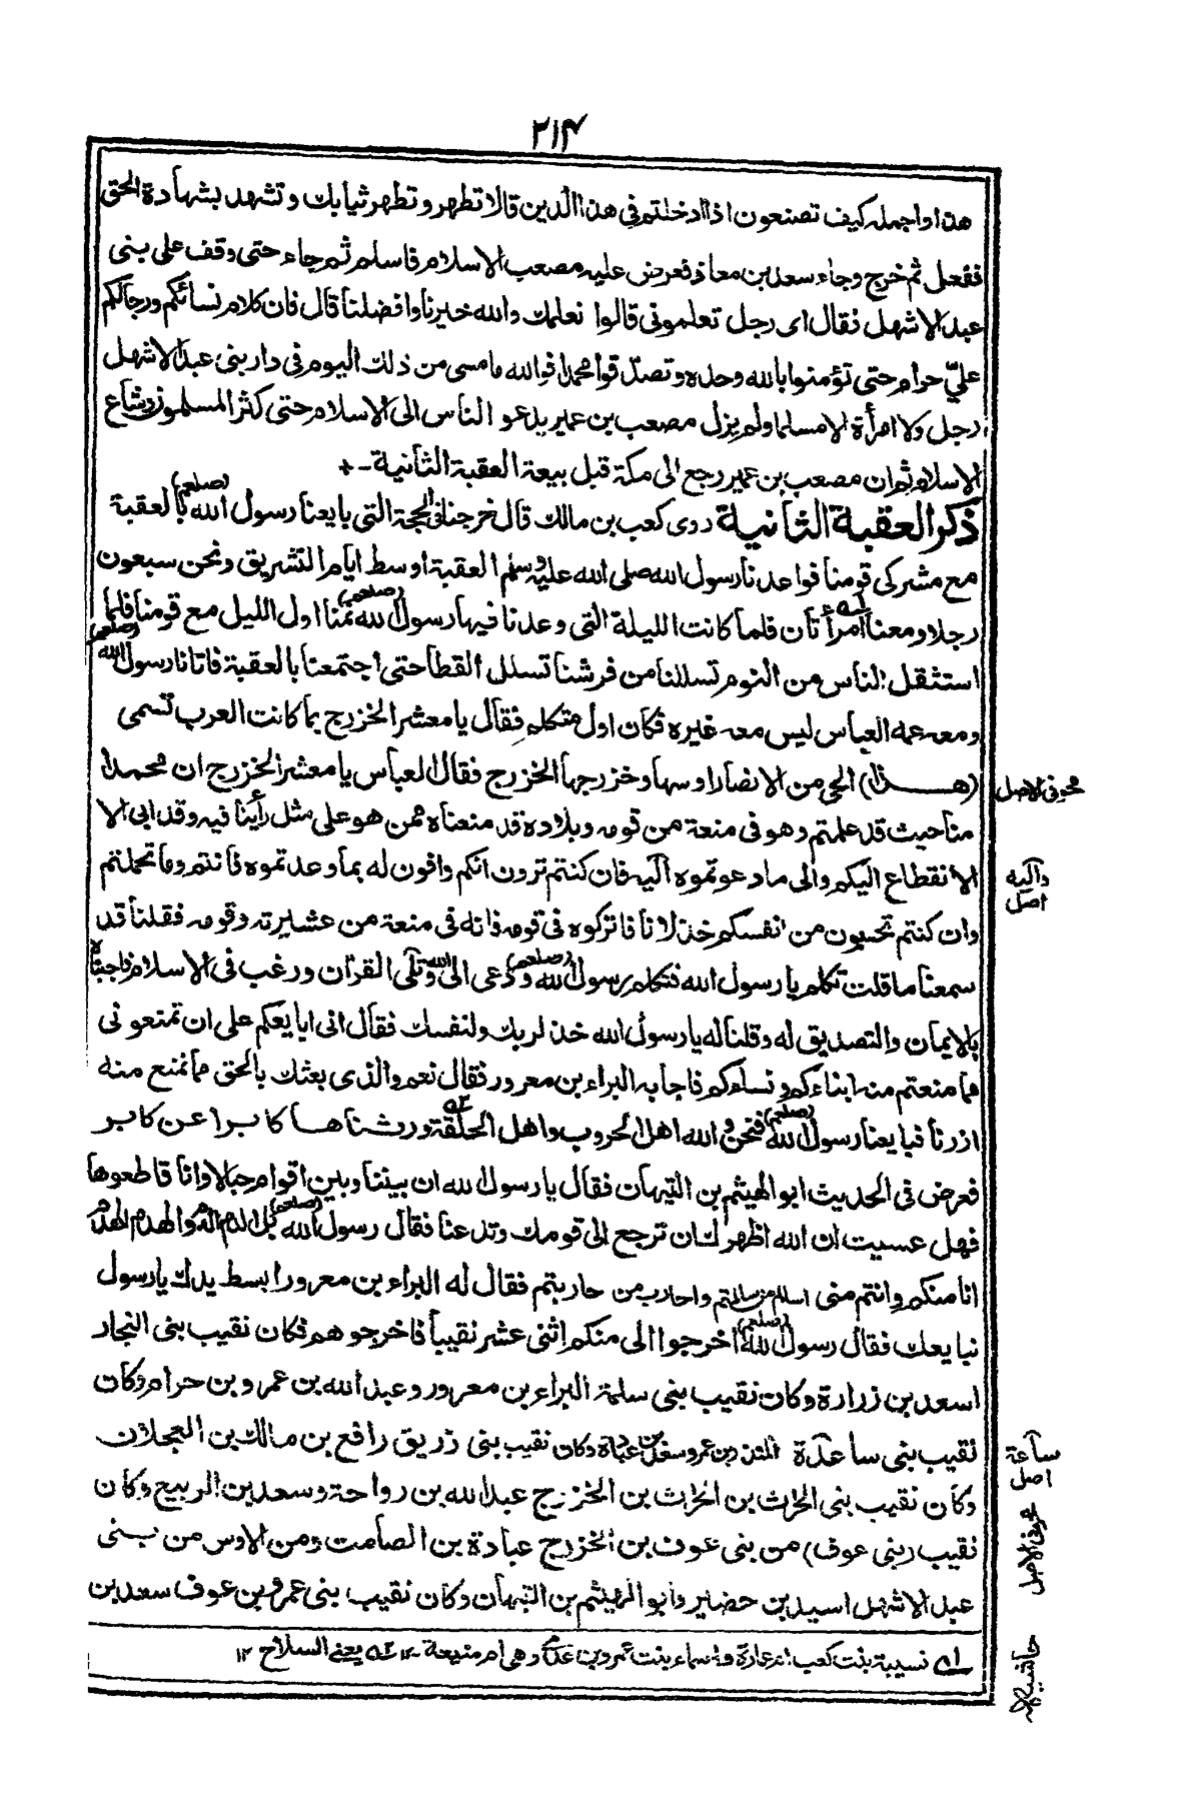 ٢١٤
هذا واجمله كيف تصنعون اذا ادخلتم في هذا الدين قالا تطهر وتطهر ثيابك وتشهد بشهادة الحق
ففعل ثم خرج وجاء سعد بن معاذ فعرض عليه مصعب الاسلام فاسلم ثم جاء حتى وقف على بنى
عبد الاشهل فقال اى رجل تعلمونى قالوا نعلمك والله خيرنا وافضلنا قال فان كلام نسائكم ورجالكم
عليّ حرام حتى تؤمنوا بالله وحده وتصدقوا محمدا فوالله ما مسى من ذلك اليوم فى دار بنى عبد الاشهل
رجل ولا امرأة الا مسلما ولم يزل مصعب بن عمير يدعو الناس الى الاسلام حتى كثر المسلمون وشاع
الاسلام ثم ان مصعب بن عمير رجع الى مكة قبل بيعة العقبة الثانية -+
ذكر العقبة الثانية روى كعب بن مالك قال خرجنا فى الحجة التى بايعنا رسول الله (صلعم) بالعقبة
مع مشركى قومنا فواعدنا رسول الله صلى الله عليه وسلم العقبة اوسط ايام التشريق ونحن سبعون
رجلا ومعنا امرأتان فلما كانت الليلة التى وعدنا فيها رسول الله (صلعم) نمنا اول الليل مع قومنا فلما
استثقل الناس من النوم تسللنا من فرشنا تسلل القطا حتى اجتمعنا بالعقبة فاتانا رسول الله (صلعم)
ومعه عمه العباس ليس معه غيره فكان اول متكلم فقال يا معشر الخزرج بما كانت العرب تسمى
(هـذا) الحى من الانصار اوسها وخزرجها الخزرج فقال العباس يا معشر الخزرج ان محمدا
محو فى الاصل
منا حيث قد علمتم وهو فى منعة من قومه وبلاده قد منعناه ممن هو على مثل رأينا فيه وقد ابى الا
الانقطاع اليكم والى ما دعوتموه اليه فان كنتم ترون انكم وافون له بما وعدتموه فانتم وما تحملتم
واليه اصل
وان كنتم تحسبون من انفسكم خذلانا فاتركوه فى قومه فانه فى منعة من عشيرته وقومه فقلنا قد
سمعنا ما قلت تكلم يا رسول الله فتكلم رسول الله (صلعم) ودعى الى الله وتلى القرآن ورغب فى الاسلام فاجبناه
بالايمان والتصديق له وقلنا له يا رسول الله خذ لربك ولنفسك فقال انى ابايعكم على ان تمنعونى
مما منعتم منه ابناءكم ونساءكم فاجابه البراء بن معرور فقال نعم والذى بعثك بالحق مما نمنع منه
ازرنا فبايعنا رسول الله (صلعم) فنحن والله اهل الحروب واهل الحلقة ورثناها كابرا عن كابر
فعرض فى الحديث ابو الهيثم بن التيهان فقال يا رسول الله ان بيننا وبين اقوام حبالا وانا قاطعوها
فهل عسيت ان الله اظهرك ان ترجع الى قومك وتدعنا فقال رسول الله (صلعم) بل الدم الدم والهدم الهدم
انا منكم وانتم منى اسالم من سالمتم واحارب من حاربتم فقال له البراء بن معرور ابسط يدك يا رسول
نبايعك فقال رسول الله (صلعم) اخرجوا الى منكم اثنى عشر نقيبا فاخرجوهم فكان نقيب بنى النجار
اسعد بن زرارة وكان نقيب بنى سلمة البراء بن معرور وعبد الله بن عمرو بن حرام وكان
نقيب بنى ساعدة المنذر بن عمرو وسعد بن عبادة وكان نقيب بنى زريق رافع بن مالك بن العجلان
ساعة اصل
وكان نقيب بنى الحراث بن الحراث بن الخزرج عبد الله بن رواحة وسعد بن الربيع وكان
نقيب (بنى عوف) من بنى عوف بن الخزرج عبادة بن الصامت ومن الاوس من بنى
محو فى الاصل
عبد الاشهل اسيد بن حضير وابو الهيثم بن التيهان وكان نقيب بنى عمرو بن عوف سعد بن
ـه نسيبة بنت كعب ام عمارة واسماء بنت عمرو بن عدى وهى ام منيعة -١٢ ـه يعنى السلاح ١٢
حاشيه